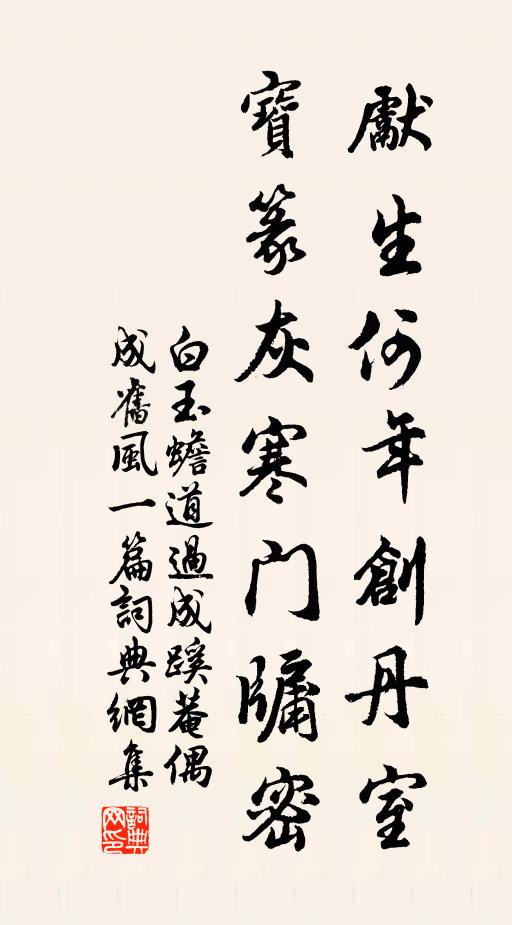 獻生何年創丹室
寶篆灰寒門牖密
白玉蟾道過成蹊菴偶
成舊風一篇詞典網集
詞典網印